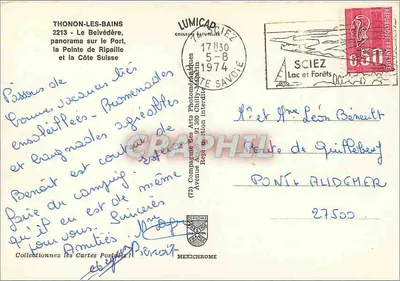 THONON-LES-BAINS
2213 - Le Belvédère,
panorama sur le Port,
la Pointe de Ripaille
et la Côte Suisse
LUMICAP
COULEURS NATURELLES
17H30
5-8
1974
HTE SAVOIE
SCIEZ
Lac et Forêts
0,50
Passons de
bonnes vacances très
ensoleillées. Promenades
et baignades agréables
Benoît est content de
faire du camping. 
qu'il en est de même
pour vous. Sincères
Amitiés.
Benoit
(72) Compagnie des Arts Photomécaniques
Reproduction interdite
Mr et Mme Léon
Route de Quillebeuf
PONT-AUDEMER
27500
CPAPHIL
Collectionnez les Cartes Postales
MEXICHROME